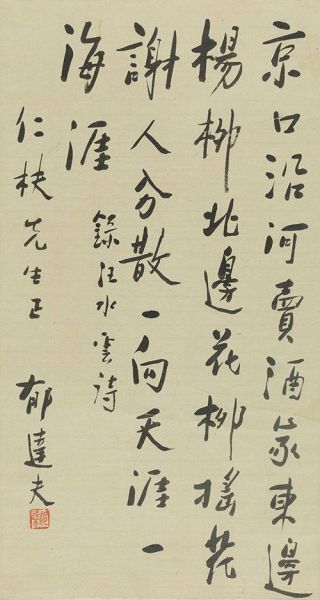 京口沿河賣酒家東邊
楊柳北邊花柳搖花
謝人分散一向天涯一
海涯
錄汪水雲詩
仁先生正
郁達夫